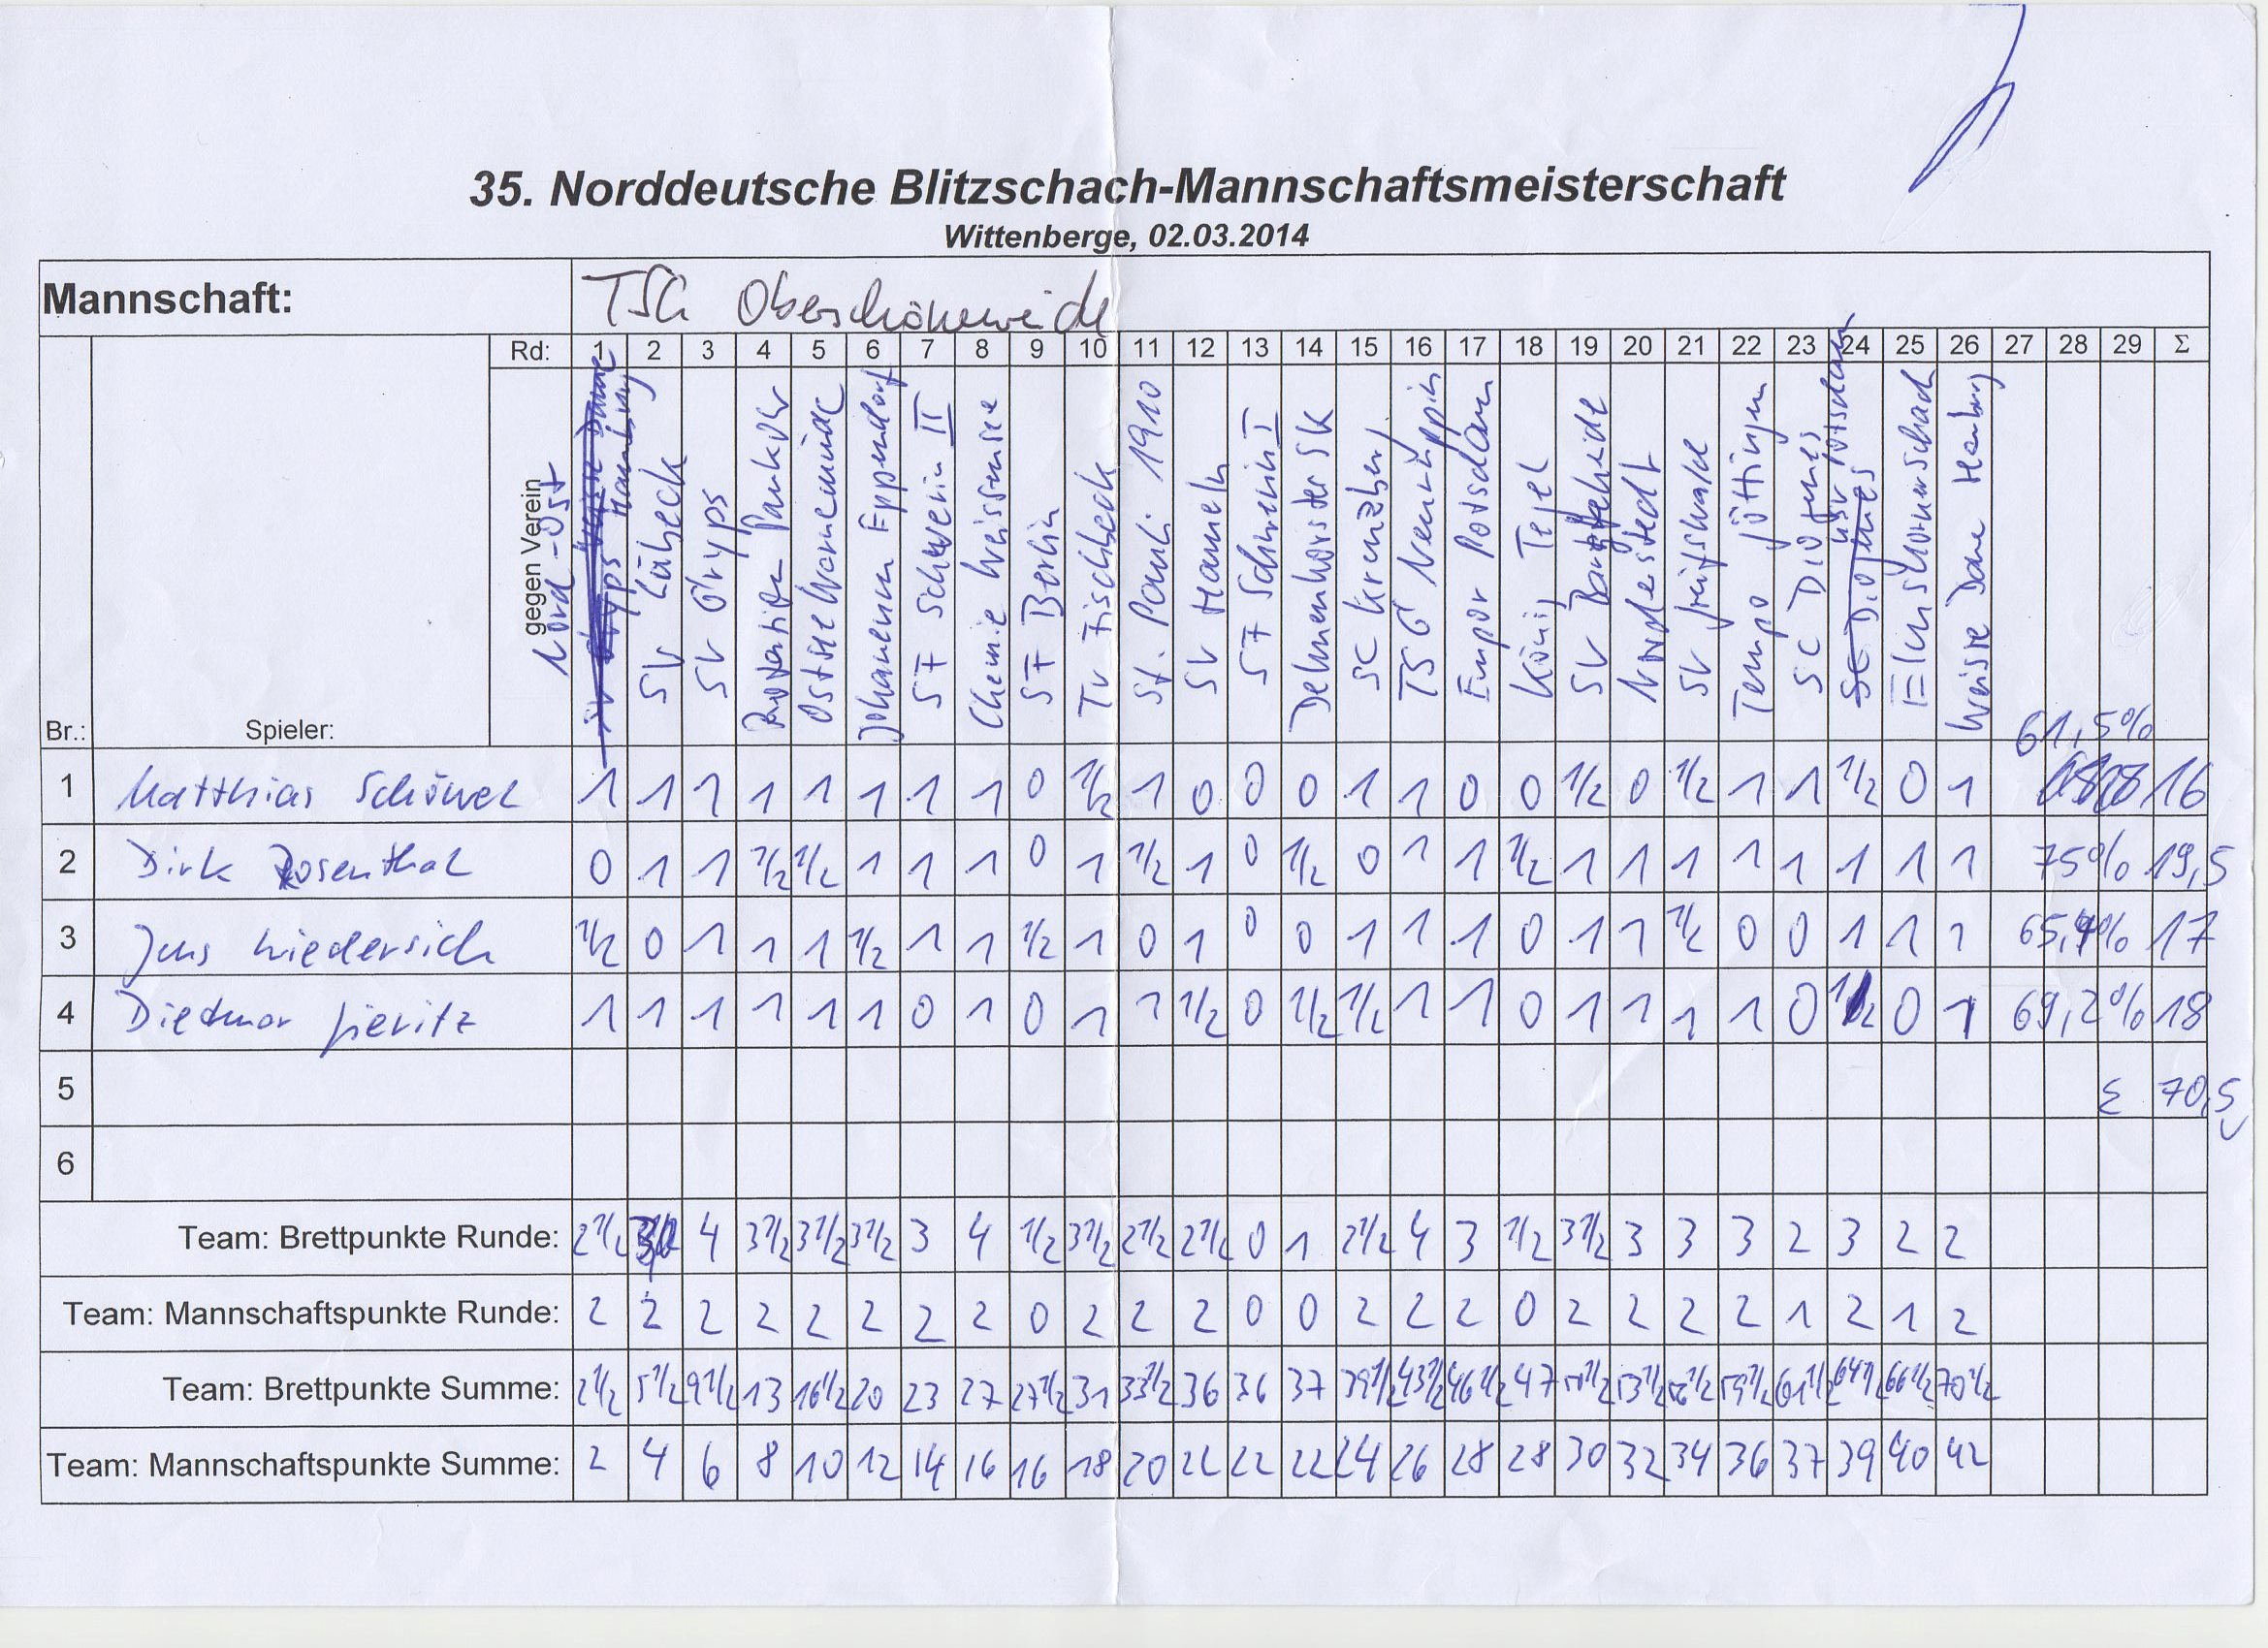 35. Norddeutsche Blitzschach-Mannschaftsmeisterschaft
Wittenberge, 02.03.2014
Mannschaft: TSG Oberschöneweide
Rd: 1 2 3 4 5 6 7 8 9 10 11 12 13 14 15 16 17 18 19 20 21 22 23 24 25 26 27 28 29 Σ
gegen Verein
Nord-Ost Hamburg
SV Lübeck
SV Gryps
Pankow
Ostsee Warnemünde
Johanneum Eppendorf
SF Schwerin II
Chemie Weissensee
SF Berlin
TV Fischbeck
St. Pauli 1910
SV Hameln
SF Schwerin I
Delmenhorster SK
SC Kreuzberg
TSG Neuruppin
Empor Potsdam
König Tegel
SV
Norderstedt
SV Greifswald
Tempo Göttingen
SC Diogenes
USV Potsdam
SC Diogenes
Elmshorner Schach
Weisse Dame Hamburg
Br.: Spieler:
61,5%
1 Matthias Schöwel 1 1 1 1 1 1 1 1 0 1/2 1 0 0 0 1 1 0 0 1/2 0 1/2 1 1 1/2 0 1 16
2 Dirk Rosenthal 0 1 1 1/2 1/2 1 1 1 0 1 1/2 1 0 1/2 0 1 1 1/2 1 1 1 1 1 1 1 1 75% 19,5
3 Jens Wiedersich 1/2 0 1 1 1 1/2 1 1 1/2 1 0 1 0 0 1 1 1 0 1 1 1/2 0 0 1 1 1 65,4% 17
4 Dietmar Gieritz 1 1 1 1 1 1 0 1 0 1 1 1/2 0 1/2 1/2 1 1 0 1 1 1 1 0 1/2 0 1 69,2% 18
5 Σ 70,5
6
Team: Brettpunkte Runde: 2 1/2 4 3 1/2 3 1/2 3 1/2 3 4 1/2 3 1/2 2 1/2 2 1/2 0 1 2 1/2 4 3 1/2 3 1/2 3 3 3 2 3 2 2
Team: Mannschaftspunkte Runde: 2 2 2 2 2 2 2 2 0 2 2 2 0 0 2 2 2 0 2 2 2 2 1 2 1 2
Team: Brettpunkte Summe: 2 1/2 5 1/2 9 1/2 13 16 1/2 20 23 27 27 1/2 31 33 1/2 36 36 37 39 1/2 43 1/2 46 1/2 47 50 1/2 53 1/2 56 1/2 59 1/2 61 1/2 64 1/2 66 1/2 70 1/2
Team: Mannschaftspunkte Summe: 2 4 6 8 10 12 14 16 16 18 20 22 22 22 24 26 28 28 30 32 34 36 37 39 40 42